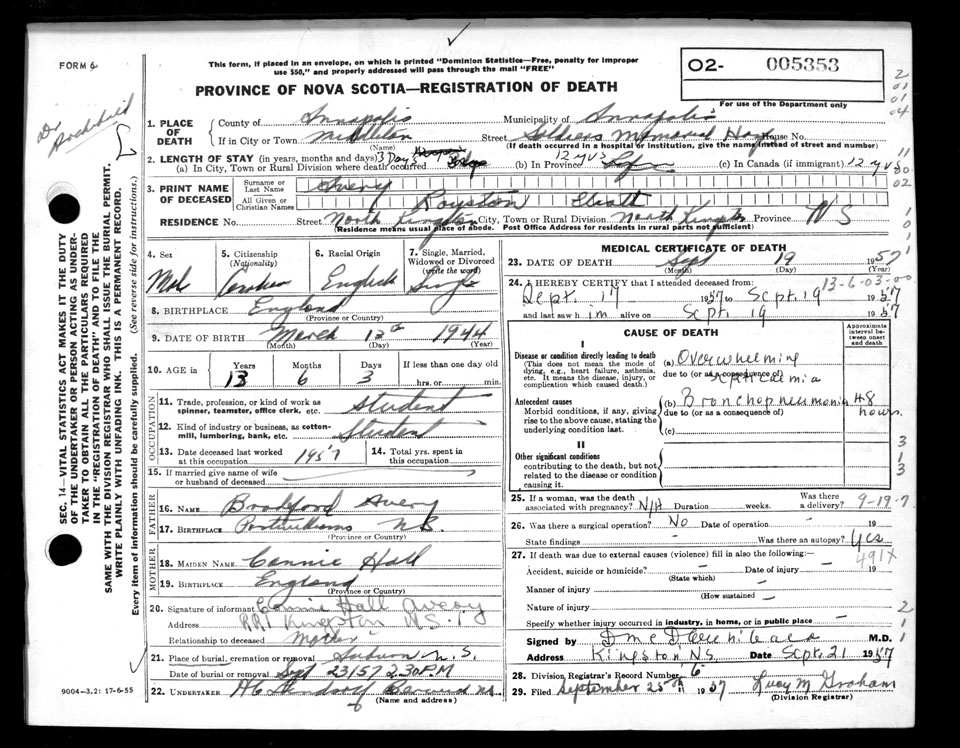 FORM 6
This form, if placed in an envelope, on which is printed "Dominion Statistics—Free, penalty for improper
use $50," and properly addressed will pass through the mail "FREE"
PROVINCE OF NOVA SCOTIA—REGISTRATION OF DEATH
O2- 005353
For use of the Department only
Dr Archibald
SEC. 14—VITAL STATISTICS ACT MAKES IT THE DUTY
OF THE UNDERTAKER OR PERSON ACTING AS UNDER-
TAKER TO OBTAIN ALL THE PARTICULARS REQUIRED
IN THE "REGISTRATION OF DEATH" AND TO FILE THE
SAME WITH THE DIVISION REGISTRAR WHO SHALL ISSUE THE BURIAL PERMIT.
WRITE PLAINLY WITH UNFADING INK. THIS IS A PERMANENT RECORD.
Every item of information should be carefully supplied. (See reverse side for instructions.)
1. PLACE OF DEATH County of Annapolis Municipality of Annapolis
If in City or Town Middleton Street Soldiers Memorial Hos House No.
(Name) (If death occurred in a hospital or institution, give the name instead of street and number)
2. LENGTH OF STAY (in years, months and days)
(a) In City, Town or Rural Division where death occurred 3 Days (b) In Province 12 yrs (c) In Canada (if immigrant) 12 yrs
3. PRINT NAME OF DECEASED Surname or Last Name Avery
All Given or Christian Names Royston
RESIDENCE No. Street North Kingston City, Town or Rural Division North Kingston Province NS
(Residence means usual place of abode. Post Office Address for residents in rural parts not sufficient)
4. Sex 5. Citizenship (Nationality) 6. Racial Origin 7. Single, Married, Widowed or Divorced (write the word)
Male English Single
8. BIRTHPLACE England
(Province or Country)
9. DATE OF BIRTH March 13th 1944
(Month) (Day) (Year)
10. AGE in Years Months Days If less than one day old
13 6 3 hrs. or min.
OCCUPATION
11. Trade, profession, or kind of work as spinner, teamster, office clerk, etc. Student
12. Kind of industry or business, as cotton-mill, lumbering, bank, etc. Student
13. Date deceased last worked at this occupation 1957 14. Total yrs. spent in this occupation
15. If married give name of wife or husband of deceased
FATHER
16. NAME Bradford Avery
17. BIRTHPLACE N.S.
(Province or Country)
MOTHER
18. MAIDEN NAME Connie Hall
19. BIRTHPLACE England
(Province or Country)
20. Signature of informant Connie Hall Avery
Address RR1 Kingston N.S.
Relationship to deceased Mother
21. Place of burial, cremation or removal Auburn N.S.
Date of burial or removal Sept 23/57 2.30 P.M
22. UNDERTAKER
(Name and address)
9004—3.2: 17-6-55
MEDICAL CERTIFICATE OF DEATH
23. DATE OF DEATH Sept 19 1957
(Month) (Day) (Year)
13-6-03-00
24. I HEREBY CERTIFY that I attended deceased from:
Sept. 17 1957 to Sept. 19 1957
and last saw him alive on Sept. 19 1957
CAUSE OF DEATH
Approximate interval between onset and death
I
Disease or condition directly leading to death
(This does not mean the mode of dying, e.g., heart failure, asthenia, etc. It means the disease, injury, or complication which caused death.)
(a) Overwhelming
due to (or as a consequence of)
Septicemia
Antecedent causes
Morbid conditions, if any, giving rise to the above cause, stating the underlying condition last.
(b) Bronchopneumonia 48 hours.
due to (or as a consequence of)
(c)
II
Other significant conditions
contributing to the death, but not related to the disease or condition causing it.
25. If a woman, was the death associated with pregnancy? N/A Duration weeks. Was there a delivery? 9-19-7
26. Was there a surgical operation? No Date of operation - 19
State findings - Was there an autopsy? Yes
491X
27. If death was due to external causes (violence) fill in also the following:—
Accident, suicide or homicide? - Date of injury - 19
(State which)
Manner of injury -
(How sustained)
Nature of injury -
Specify whether injury occurred in industry, in home, or in public place -
Signed by D McD Archibald M.D.
Address Kingston NS Date Sept. 21 1957
28. Division Registrar's Record Number 6
29. Filed September 25th 1957 Lucy M Graham
(Division Registrar)